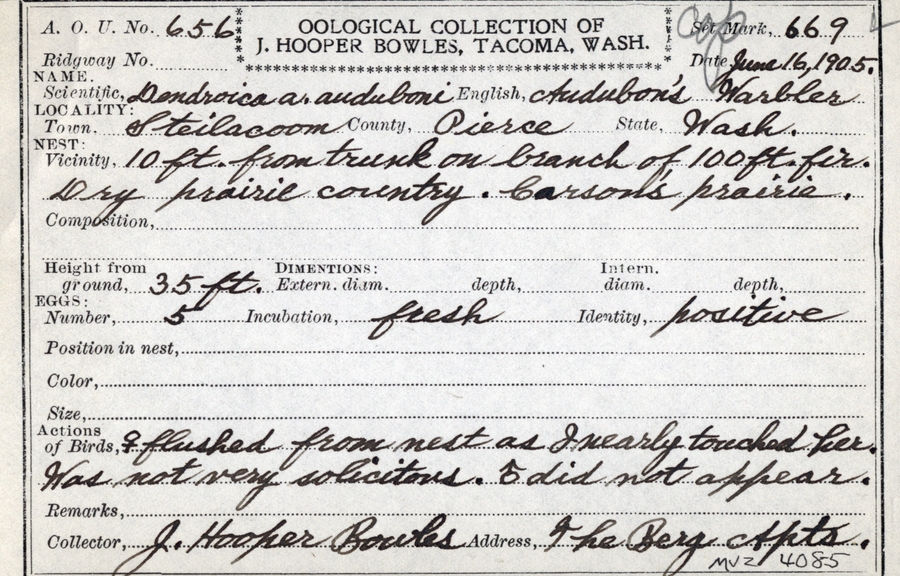 A. O. U. No. 656 OOLOGICAL COLLECTION OF Set Mark, 669
J. HOOPER BOWLES, TACOMA, WASH.
Ridgway No. Date June 16, 1905.
NAME.
Scientific, Dendroica a. auduboni English, Audubon's Warbler
LOCALITY:
Town. Steilacoom County, Pierce State, Wash.
NEST:
Vicinity, 10 ft. from trunk on branch of 100 ft. fir.
Dry prairie country. Carson's prairie.
Composition,
Height from DIMENTIONS: Intern.
ground, 35 ft. Extern. diam. depth, diam. depth,
EGGS:
Number, 5 Incubation, fresh Identity, positive
Position in nest,
Color,
Size,
Actions
of Birds, ♀ flushed from nest as I nearly touched her.
Was not very solicitous. ♂ did not appear.
Remarks,
Collector, J. Hooper Bowles Address, The Berg Apts.
MVZ 4085